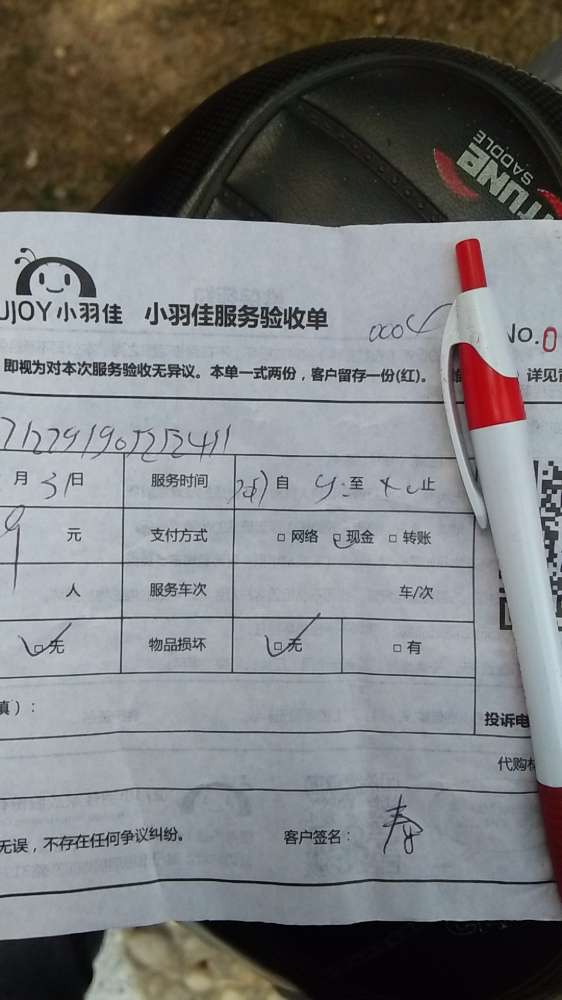 TUNE
SADDLE
UJOY小羽佳 小羽佳服务验收单
No.0
即视为对本次服务验收无异议。本单一式两份，客户留存一份(红)。 详见
月31日 服务时间 自 至 止
9 元 支付方式 □ 网络 □ 现金 □ 转账
人 服务车次 车/次
□ 无 物品损坏 □ 无 □ 有
填）：
投诉电
代购
无误，不存在任何争议纠纷。 客户签名： 春